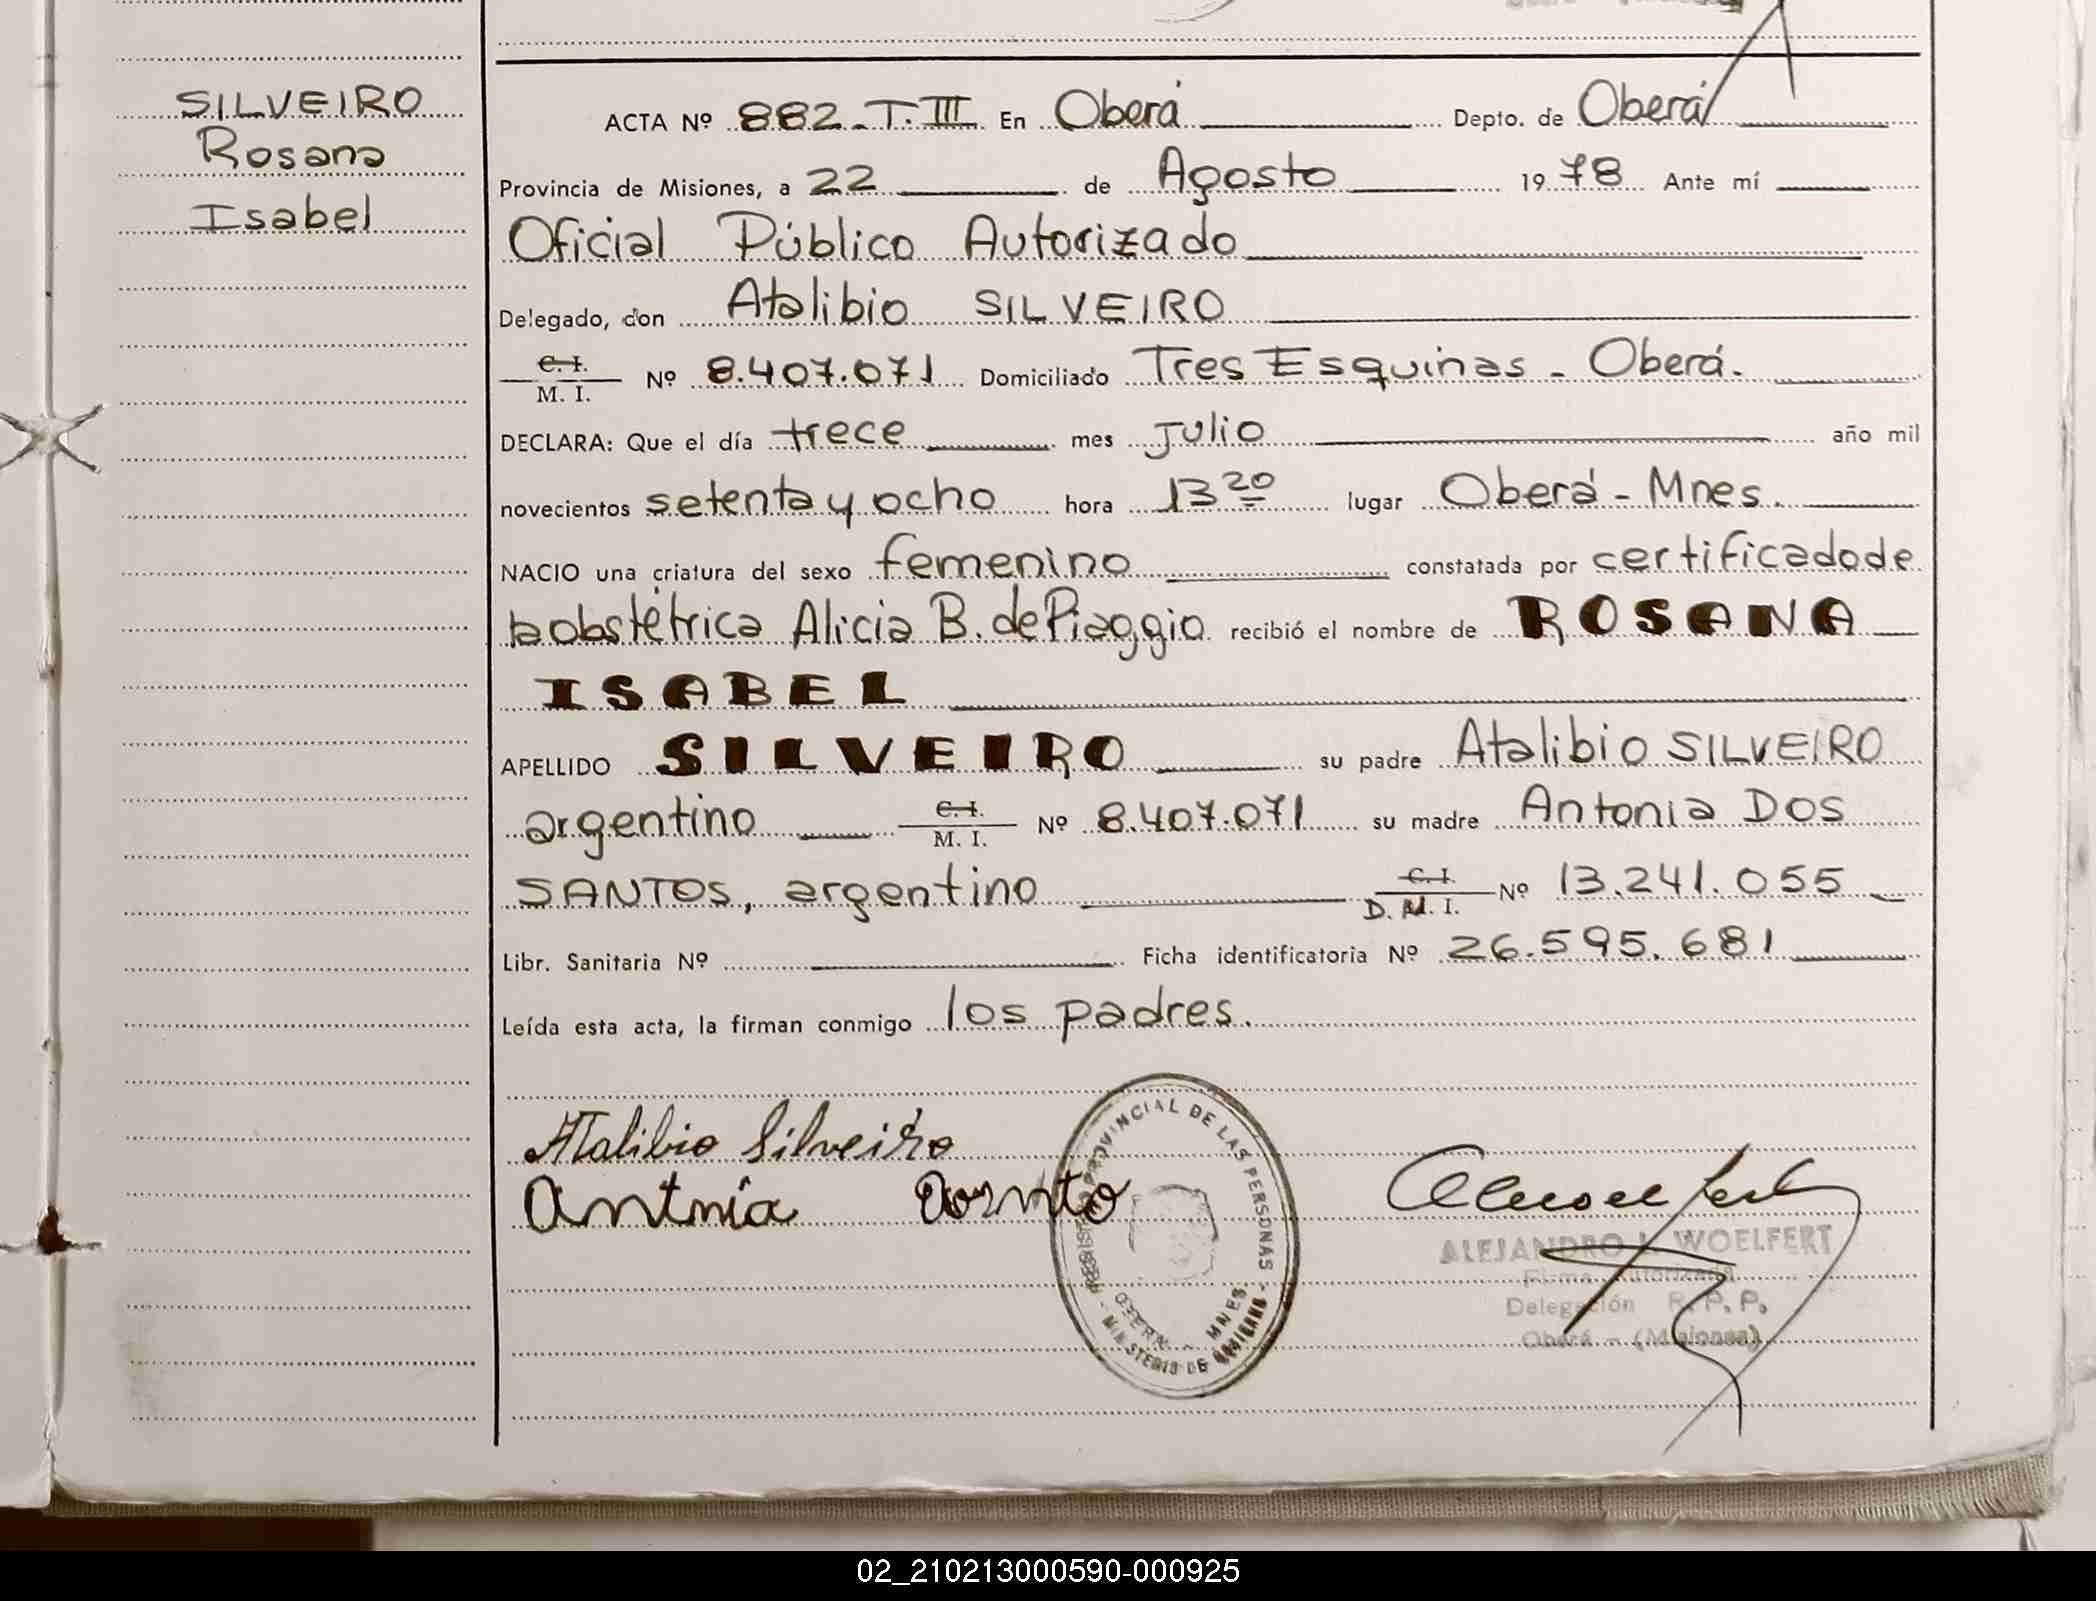 SILVEIRO
Rosana
Isabel
ACTA Nº 882-T.III En Oberá Depto. de Oberá
Provincia de Misiones, a 22 de Agosto 1978 Ante mí
Oficial Público Autorizado
Delegado, don Atalibio SILVEIRO
C. I. / M. I. Nº 8.407.071 Domiciliado Tres Esquinas - Oberá.
DECLARA: Que el día trece mes julio año mil
novecientos setenta y ocho hora 13 20 lugar Oberá - Mnes.
NACIO una criatura del sexo femenino constatada por certificado de
la obstétrica Alicia B. de Piaggio recibió el nombre de ROSANA
ISABEL
APELLIDO SILVEIRO su padre Atalibio SILVEIRO
argentino C. I. / M. I. Nº 8.407.071 su madre Antonia DOS
SANTOS, argentino C. I. / D. M. I. Nº 13.241.055
Libr. Sanitaria Nº Ficha identificatoria Nº 26.595.681
Leída esta acta, la firman conmigo los padres.
Atalibio Silveiro
Antnia
PROVINCIAL DE LAS PERSONAS - MINISTERIO DE
MNES.
ALEJANDRO L. WOELFERT
Firma Autorizada
Delegación R. P. P.
Oberá - (Misiones)
02_210213000590-000925